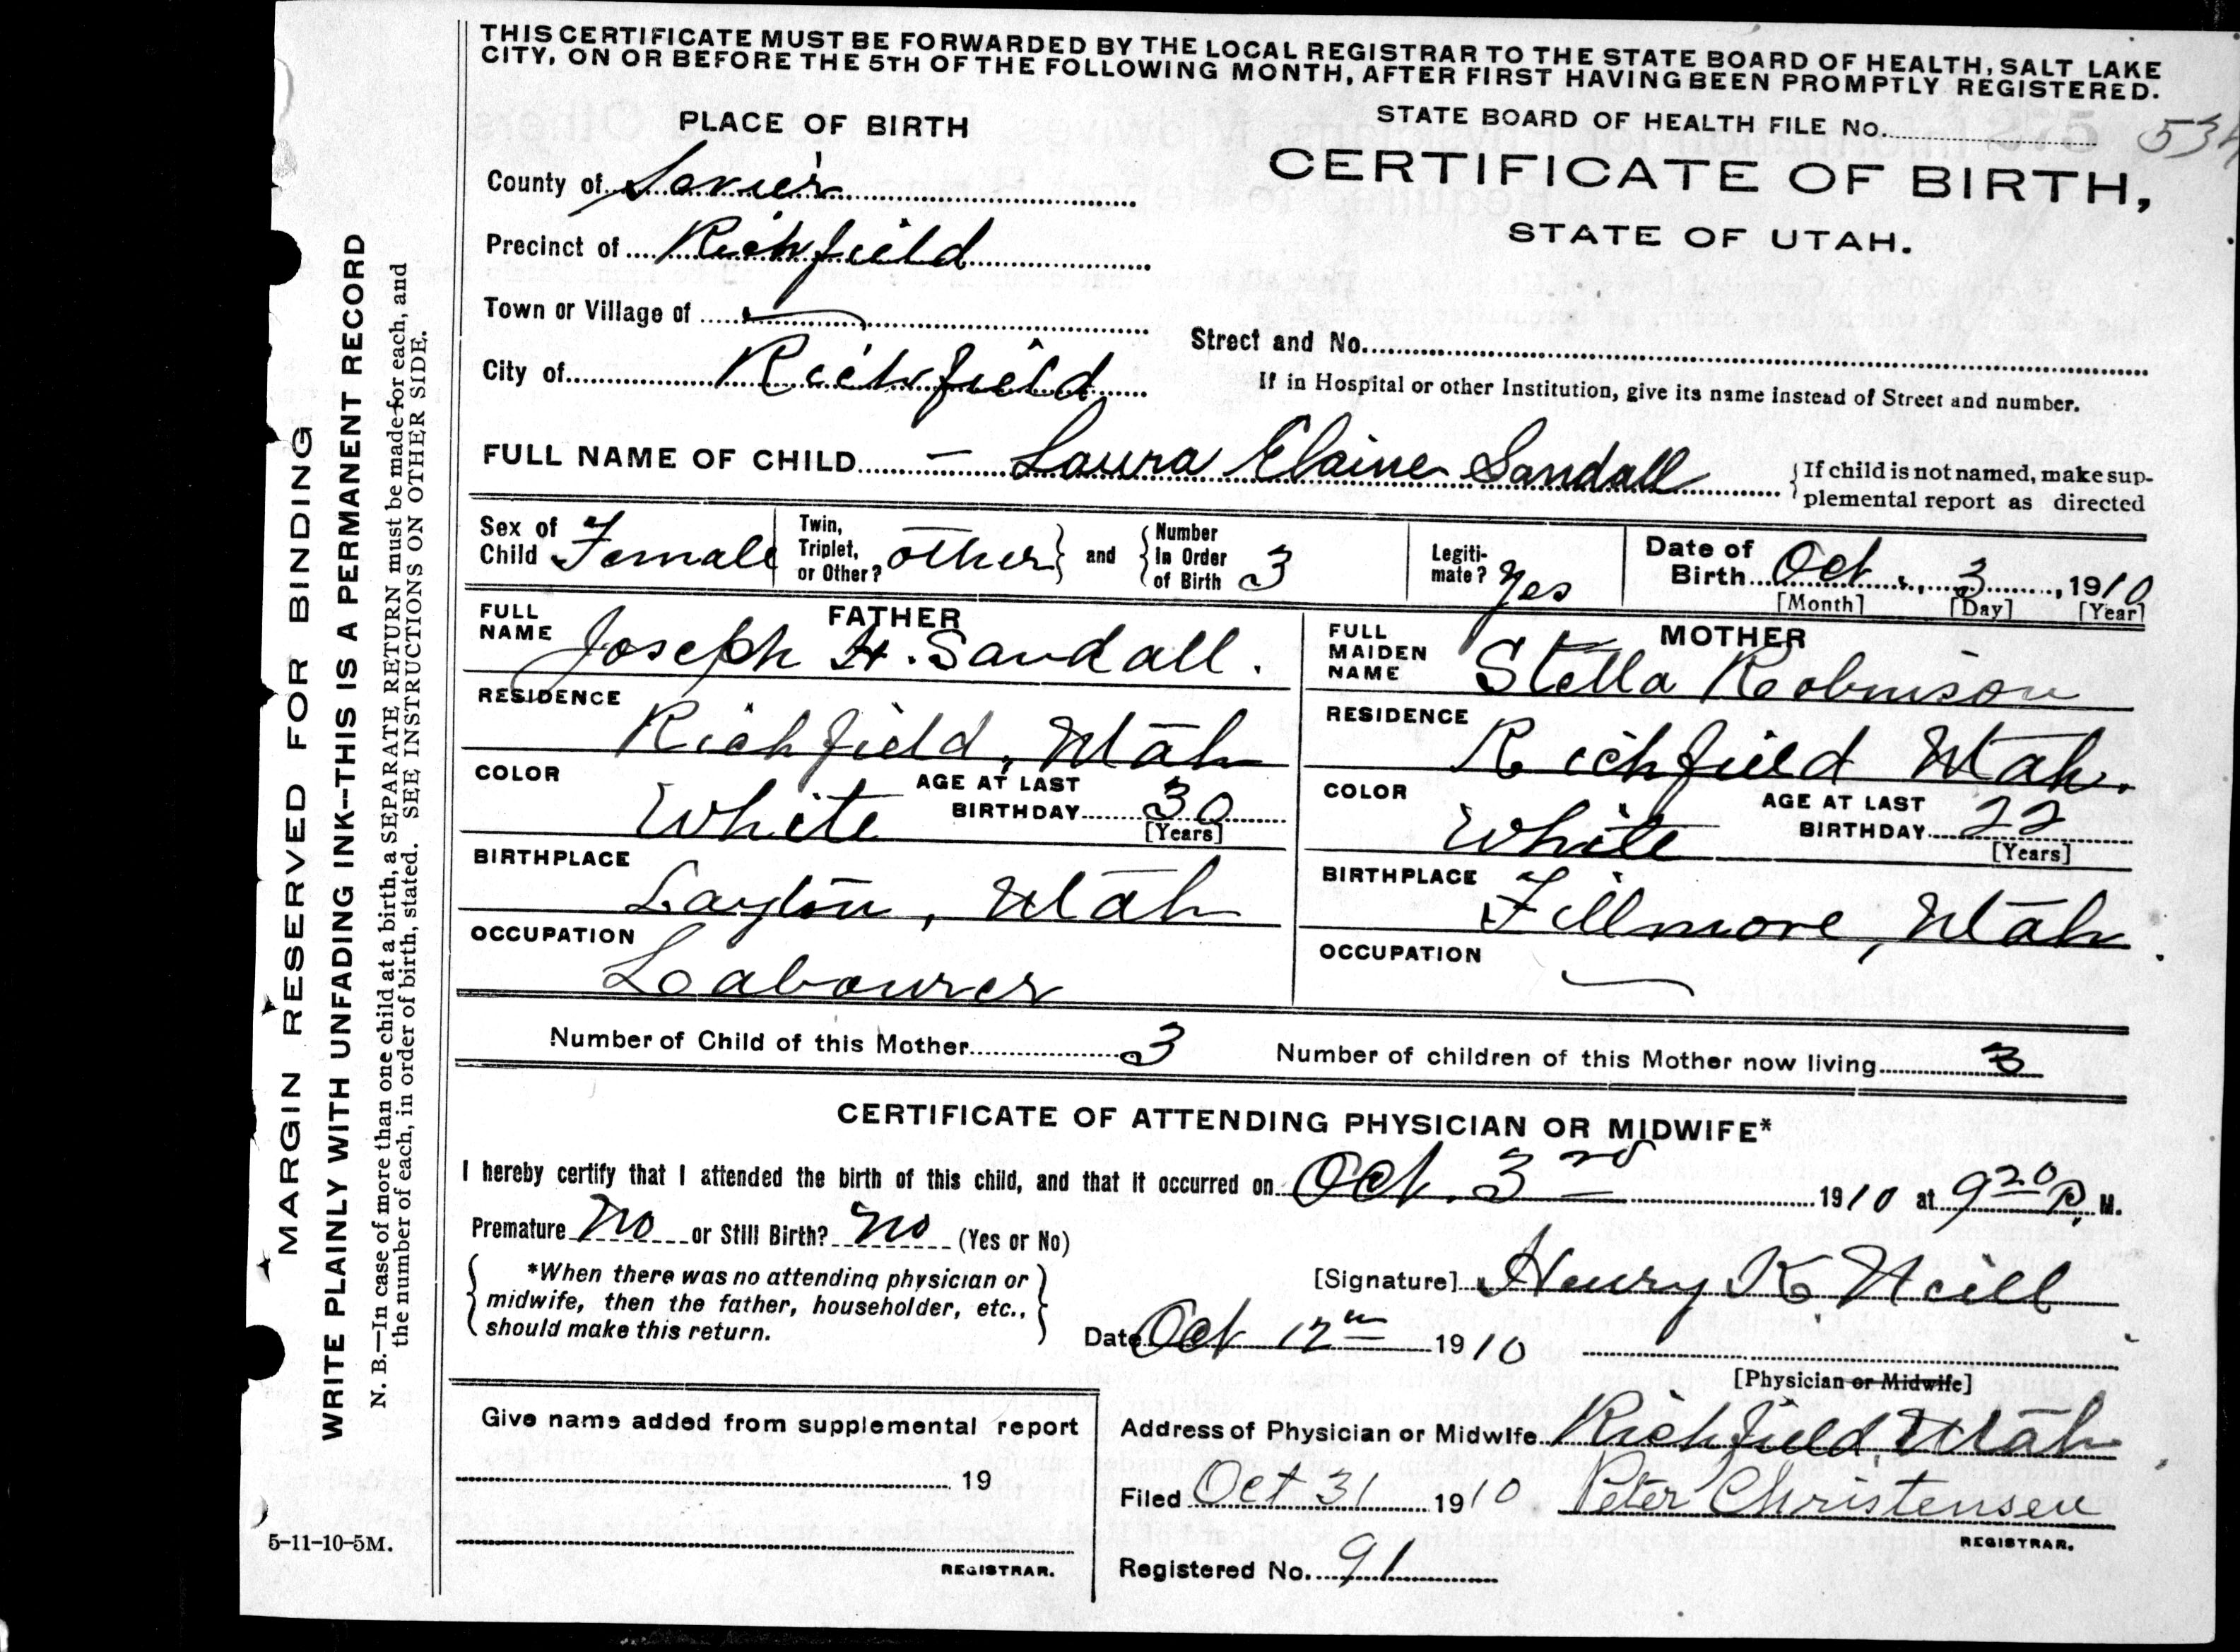 THIS CERTIFICATE MUST BE FORWARDED BY THE LOCAL REGISTRAR TO THE STATE BOARD OF HEALTH, SALT LAKE
CITY, ON OR BEFORE THE 5TH OF THE FOLLOWING MONTH, AFTER FIRST HAVING BEEN PROMPTLY REGISTERED.
PLACE OF BIRTH
STATE BOARD OF HEALTH FILE No. 534
County of Sevier
CERTIFICATE OF BIRTH,
STATE OF UTAH.
Precinct of Richfield
Town or Village of
Street and No.
City of Richfield
If in Hospital or other Institution, give its name instead of Street and number.
FULL NAME OF CHILD — Laura Elaine Sandall { If child is not named, make sup-
plemental report as directed
Sex of Child Female
Twin, Triplet, or Other? other } and { Number in Order of Birth 3
Legiti-mate? Yes
Date of Birth Oct. 3, 1910
[Month] [Day] [Year]
FATHER
FULL NAME Joseph H. Sandall.
RESIDENCE
Richfield, Utah
COLOR White AGE AT LAST BIRTHDAY 30
[Years]
BIRTHPLACE
Layton, Utah
OCCUPATION
Labourer
MOTHER
FULL MAIDEN NAME Stella Robinson
RESIDENCE
Richfield Utah.
COLOR White AGE AT LAST BIRTHDAY 22
[Years]
BIRTHPLACE
Fillmore, Utah
OCCUPATION —
Number of Child of this Mother 3 Number of children of this Mother now living 3
CERTIFICATE OF ATTENDING PHYSICIAN OR MIDWIFE*
I hereby certify that I attended the birth of this child, and that it occurred on Oct. 3rd 1910 at 9 20 P. M.
Premature No or Still Birth? No (Yes or No)
{ *When there was no attending physician or
midwife, then the father, householder, etc.,
should make this return. }
[Signature] Henry K Neill
Date Oct 12th 1910
[Physician or Midwife]
Give name added from supplemental report
19
REGISTRAR.
Address of Physician or Midwife Richfield Utah
Filed Oct 31 1910 Peter Christensen
REGISTRAR.
Registered No. 91
MARGIN RESERVED FOR BINDING
WRITE PLAINLY WITH UNFADING INK--THIS IS A PERMANENT RECORD
N. B.—In case of more than one child at a birth, a SEPARATE RETURN must be made for each, and
the number of each, in order of birth, stated. SEE INSTRUCTIONS ON OTHER SIDE.
5-11-10-5M.